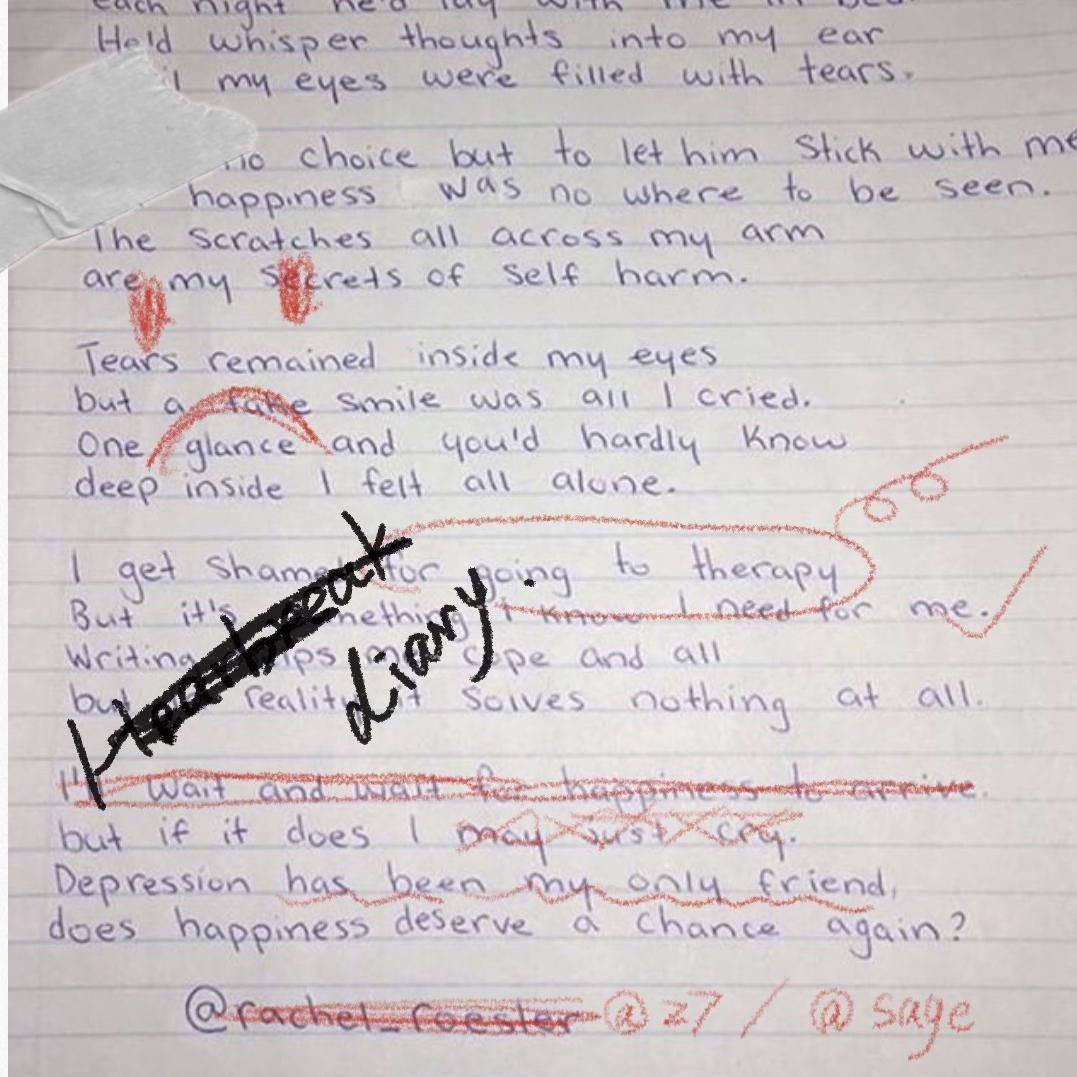 each night he'd lay with me in bed.
He'd whisper thoughts into my ear
my eyes were filled with tears.
no choice but to let him Stick with me
happiness was no where to be seen.
The scratches all across my arm
are my secrets of self harm.
Tears remained inside my eyes
but a fake smile was all I cried.
One glance and you'd hardly know
deep inside I felt all alone.
I get shamed for going to therapy
But it's something I know I need for me.
Writing helps me cope and all
but reality it solves nothing at all.
Heartbreak
diary.
I'll wait and wait for happiness to arrive.
but if it does I may just cry.
Depression has been my only friend,
does happiness deserve a chance again?
@rachel_roester @z7 / @sage